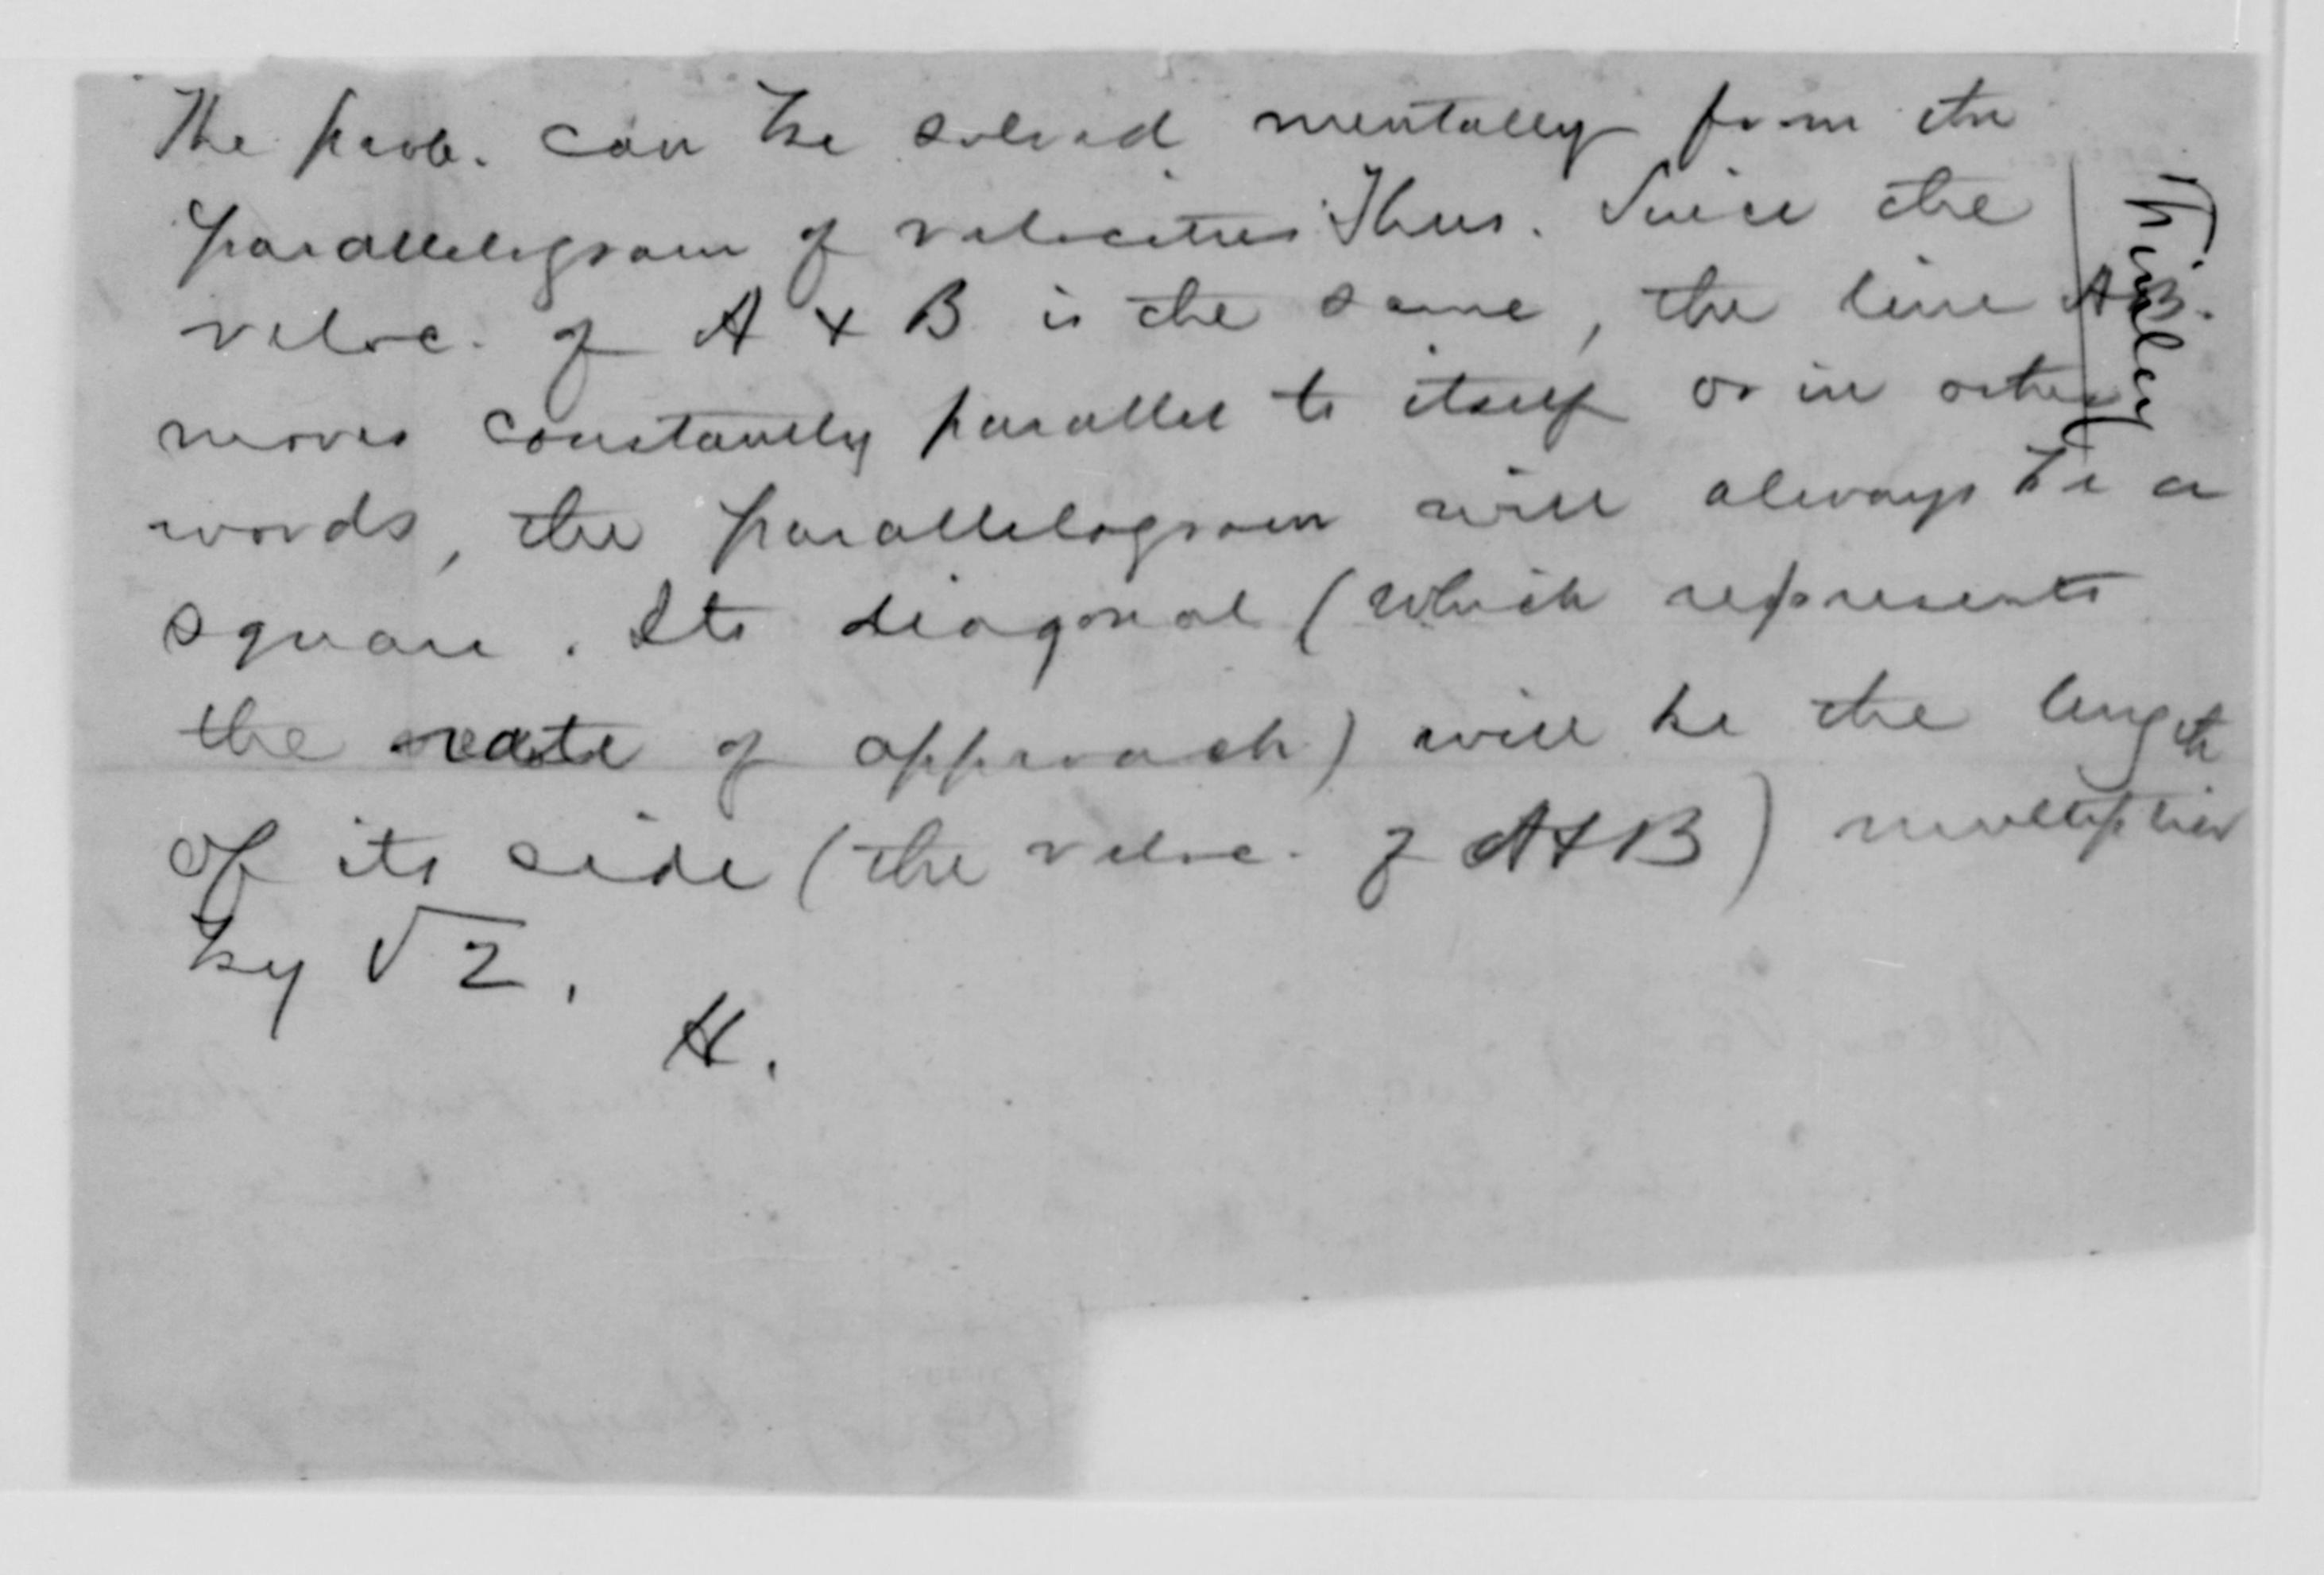 The prob. can be solved mentally from the
parallelogram of velocities Thus. Since the
veloc. of A & B is the same, the line AB.
moves constantly parallel to itself or in other
words, the parallelogram will always be a
square. Its diagonal (which represents
the rate of approach) will be the length
of its side (the veloc. of A & B) multiplied
by √2.
H.